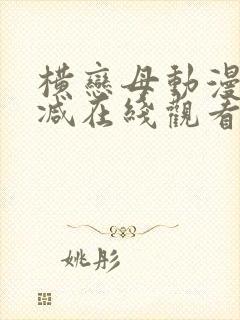 橫戀母動漫
减在綫觀看
姚彤